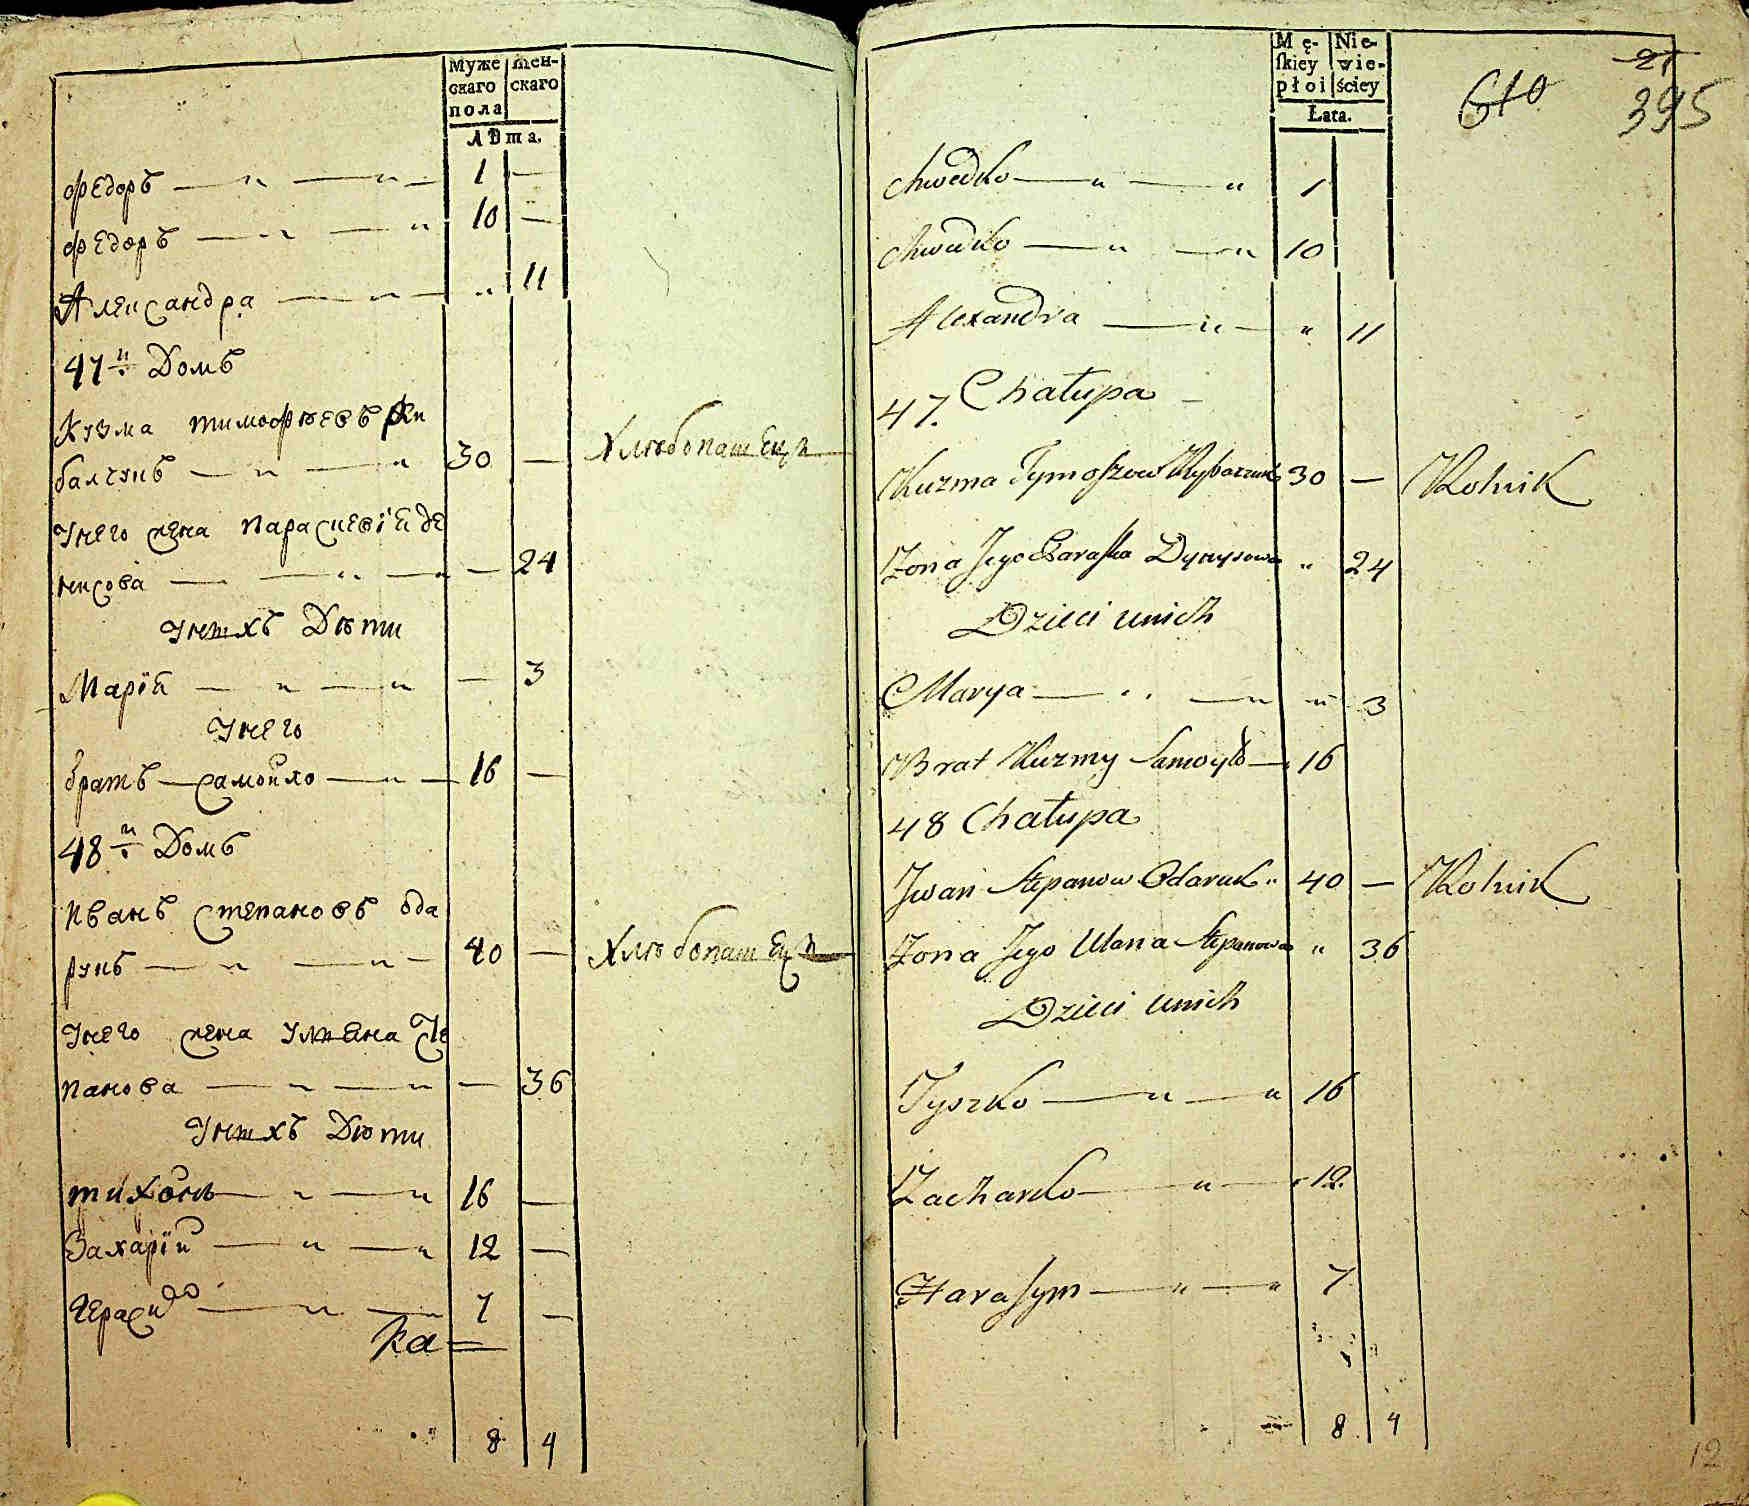 Муже жен-
скаго скаго
пола
Лѣта.
Федоръ — „ — „ — 1 —
Федоръ — „ — „ 10 —
Александра — „ — „ 11
47й Домъ
Кузма тимофѣевъ Ки
балчукъ — „ — „ 30 — Хлѣбопашецъ
Унего жена Параскевія де
нисова — — „ — „ — 24
Унихъ Дѣти
Марія — „ — „ — 3
Унего
братъ — самойло — „ — 16 —
48й Домъ
Иванъ степановъ ода
рукъ — „ — „ — 40 — Хлѣбопашецъ
Унего жена Ульяна Сте
панова — „ — „ — 36
Унихъ Дѣти
тихонъ — „ — „ 16 —
Захарій — „ — „ 12 —
Герасим — „ — „ 7 —
ка
8 4
Mę- Nie-
ſkiey wie-
płoi ściey
Łata.
610
21
395
Chwedko — „ — „ 1
Chwedko — „ — „ 10
Alexandra — „ — „ 11
47. Chałupa —
Kuzma Tymoszow 30 — Rolnik
Zona Jego Paraska Dynysowa „ 24
Dzieci unich
Marya — „ — „ „ 3
Brat Kuzmy Samoyło — 16
48 Chałupa
Jwan Stepanow Odaruk „ 40 — Rolnik
Zona Jego Ulana Stepanowa „ 36
Dzieci unich
Tyszko — „ — „ 16
Zacharko — „ — 12
Harasym — „ — „ 7
8 4
12